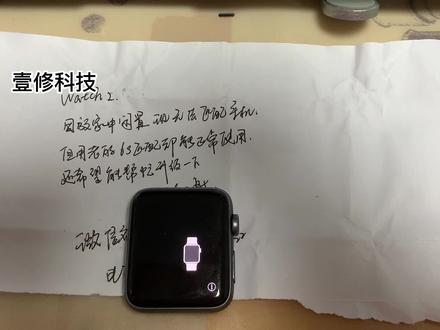 壹修科技
Watch 2.
因放家中闲置现无法匹配手机.
但用老的6S匹配却能正常使用.
还希望能帮忙升级一下
微信
电